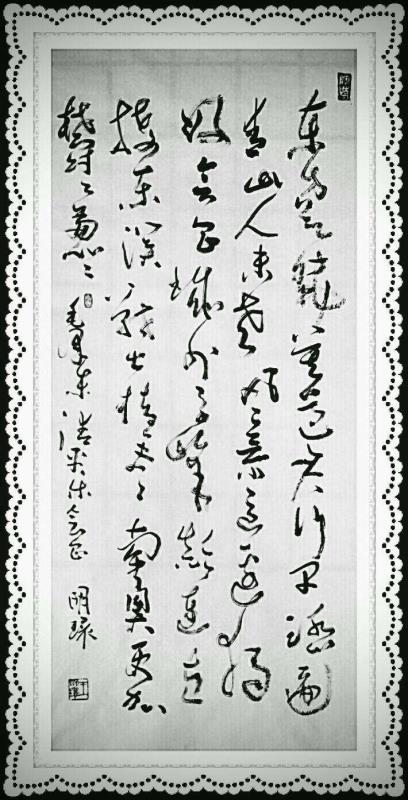 东方欲晓莫道君行早踏遍
青山人未老风景这边独
好会昌城外高峰颠连直
接东溟战士指看南粤更加
郁郁葱葱 毛泽东清平乐会昌 明